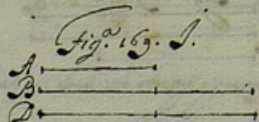 Fig.ᵃ 169. I.
A
B
D